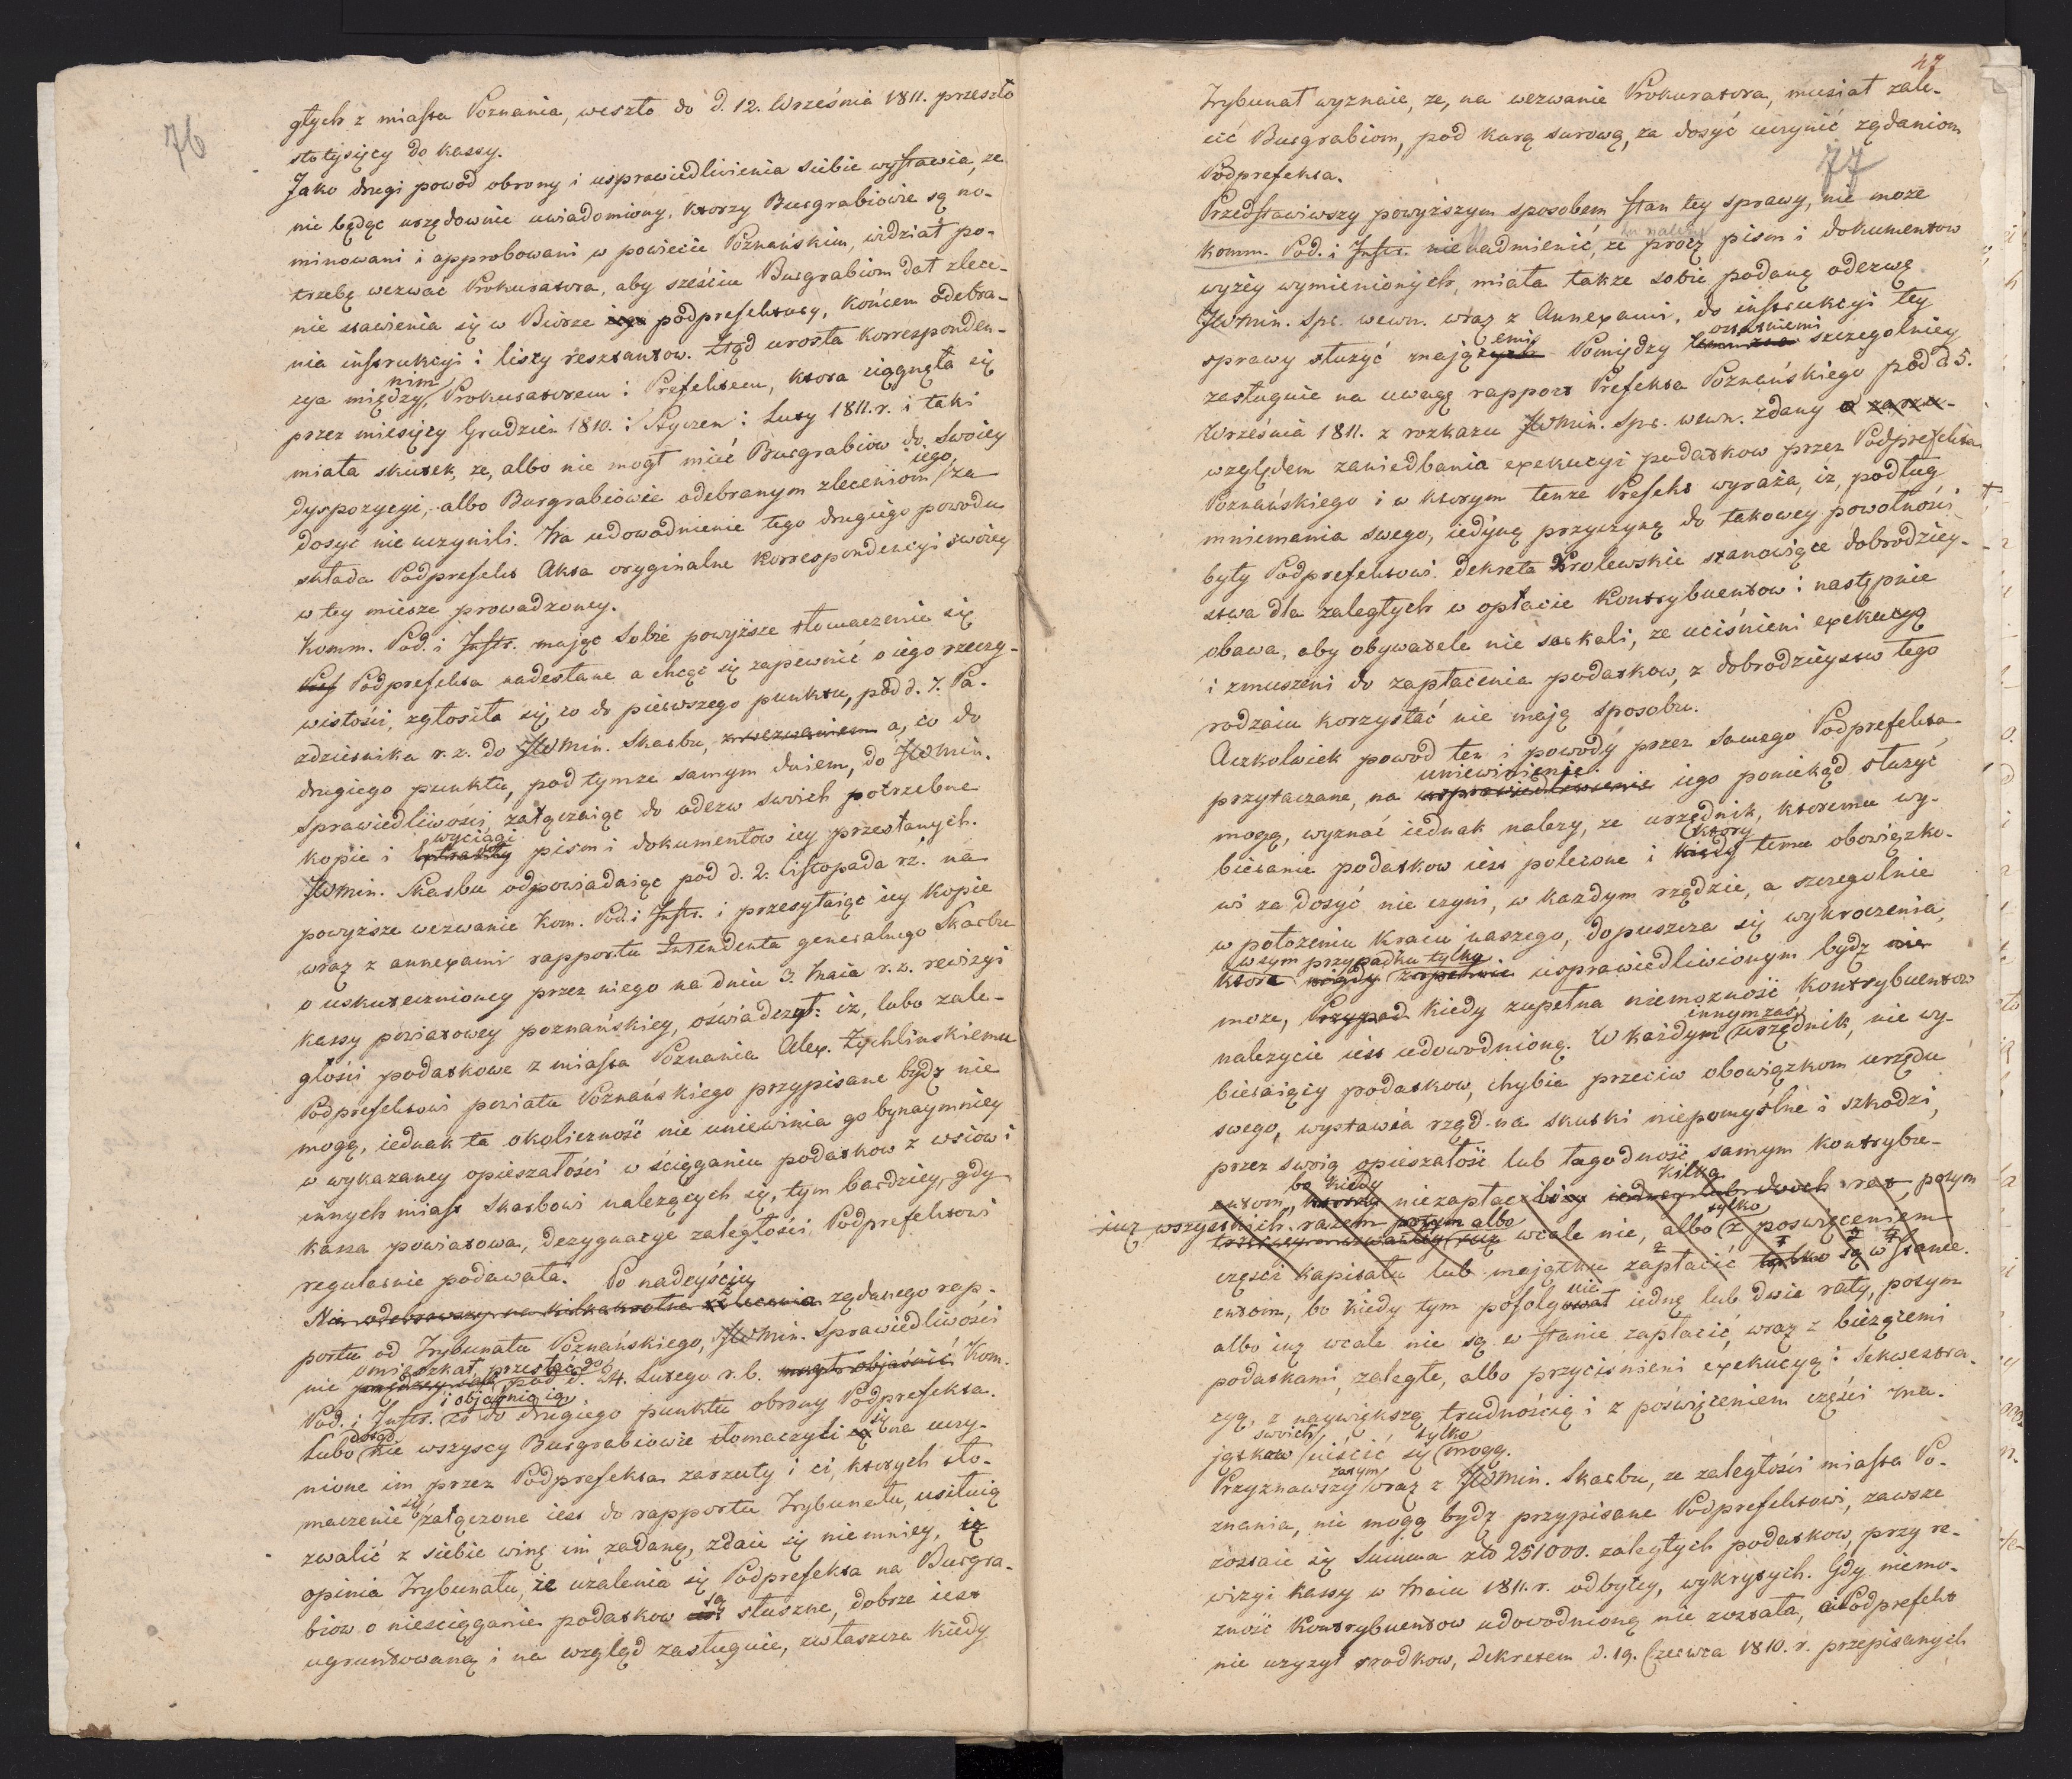 76
głych z miasta Poznania, weszło do d. 12. Września 1811. przeszło
sto tysięcy do kassy.
Jako drugi powód obrony i usprawiedliwienia siebie wystawia, że
nie będąc urzędownie uwiadomiony, ktorzy Burgrabiowie są no-
minowani i approbowani w powiecie Poznańskim, widział po-
trzebę wezwać Prokuratora, aby sześciu Burgrabiom dał zlece-
nie stawienia się w Biorze podprefektury, końcem odebra-
nia instrukcyi i listy resztantow. Ztąd urosła korresponden-
cya między nim, Prokuratorem i Prefektem, ktora ciągnęła się
przez miesięcy Grudzień 1810. i Styczeń i Luty 1811. r. i taki
miała skutek, że, albo nie mogł mieć Burgrabiow do swoiey
dyspozycyi, albo Burgrabiowie odebranym zleceniom iego za
dosyć nie uczynili. Na udowodnienie tego drugiego powodu
składa Podprefekt Akta oryginalne korrespondencyi swoiey
w tey mierze prowadzoney.
Komm. Pod. i Instr. maiąc sobie powyższe tłomaczenie się
Podprefekta nadesłane a chcąc się zapewnić o iego rzeczy-
wistości, zgłosiła się, co do pierwszego punktu, pod d. 7. Pa-
zdziernika r. z. do JWMin. Skarbu, z wezwaniem a, co do
drugiego punktu, pod tymże samym dniem, do JWMin.
Sprawiedliwości, załączaiąc do odezw swoich potrzebne
kopie i Extrakty wyciągi pism i dokumentow iey przesłanych.
JWMin. Skarbu odpowiadaiąc pod d. 2. Listopada r.z. na
powyższe wezwanie Kom. Pod. i Instr. i przesyłaiąc iey kopie
wraz z annexami rapportu Intendenta generalnego Skarbu
o uskutecznioney przez niego na dniu 3. Maia r. z. rewizyi
kassy powiatowey poznańskiey, oświadczył: iż, lubo zale-
głości podatkowe z miasta Poznania Alex. Żychlinskiemu
Podprefektowi powiatu Poznańskiego przypisane bydź nie
mogą, iednak ta okoliczność nie uniewinia go bynaymniey
w wykazaney opieszałości w ściąganiu podatkow z wsiow i
innych miast Skarbowi należących się, tym bardziey, gdy
kassa powiatowa, dezygnacye zaległości Podprefektowi
regularnie podawała.
Nie odebrawszy na kilkakrotne zlecenia Po nadeyściu żądanego rap-
portu od Trybunału Poznańskiego, JWMin. Sprawiedliwości
nie omieszkał przesłać go pod d. 24. Lutego r. b. mogł obiaśnić Kom.
Pod. i Instr. i obiaśnia ią co do drugiego punktu obrony Podprefekta.
Lubo dotąd nie wszyscy Burgrabiowie tłomaczyli się na uczy-
nione im przez Podprefekta zarzuty i ci, ktorych tło-
maczenie się załączone iest do rapportu Trybunału, usiłuią
zwalić z siebie winę im zadaną, zdaie się niemniey, iż
opinia Trybunału, że użalenia się Podprefekta na Burgra-
biow o nieściąganie podatkow są słuszne, dobrze iest
ugruntowaną i na wzgląd zasługuie, zwłaszcza kiedy
47
77
Trybunał wyznaie, że, na wezwanie Prokuratora, musiał zale-
cić Burgrabiom, pod karą surową, za dosyć uczynić żądaniom
Podprefekta.
Przedstawiwszy powyższym sposobem stan tey sprawy, nie może
Komm. Pod. i Instr. nie nadmienić, że procz pism i dokumentow
wyżey wymienionych, miała także sobie podaną odezwę
JWMin. Spr. wewn. wraz z Annexami, do instrukcyi tey
sprawy służyć maiącemi. Pomiędzy ostatniemi szczegolniey
zasługuie na uwagę rapport Prefekta Poznańskiego pod d. 5.
Września 1811. z rozkazu JWMin. Spr. wewn. zdany
względem zaniedbania exekucyi podatkow przez Podprefekta
Poznańskiego i w ktorym tenże Prefekt wyraża, iż, podług
mniemania swego, iedyną przyczyną do takowey powolności
były Podprefektowi dekreta Krolewskie stanowiące dobrodziey-
stwa dla zaległych w opłacie Kontrybuentow i następnie
obawa, aby obywatele nie sarkali, że uciśnieni exekucyą
i zmuszeni do zapłacenia podatkow, z dobrodzieystw tego
rodzaiu korzystać nie maią sposobu.
Aczkolwiek powod ten i powody przez samego Podprefekta
przytaczane, na usprawiedliwienie uniewinienie iego poniekąd służyć
mogą, wyznać iednak należy, że urzędnik, ktoremu wy-
bieranie podatkow iest polecone i ktory temu obowiązko-
wi za dosyć nie czyni, w każdym rządzie, a szczegolnie
w położeniu kraiu naszego, dopuszcza się wykroczenia,
ktore w tym przypadku tylko usprawiedliwionym bydź
może, kiedy zupełna niemożność Kontrybuentow
należycie iest udowodnioną. W każdym innym zaś urzędnik, nie wy-
bieraiący podatkow, chybia przeciw obowiązkom urzędu
swego, wystawia rząd na skutki niepomyślne i szkodzi,
przez swoią opieszałość lub łagodność samym kontrybu-
entom, bo kiedy niezapłacili kilka rat, potym
iuż wszystkich razem potym albo wcale nie, albo tylko z poswięceniem
części kapitału lub maiątku zapłacić są w stanie.
entom, bo kiedy tym pofolgował iednę lub dwie raty, potym
albo iuż wcale nie są w stanie zapłacić, wraz z bieżącemi
podatkami, zaległe, albo przyciśnieni exekucyą i sekwestra-
cyą, z naywiększą trudnością i z poświęceniem części ma-
iątkow swoich uiścić się tylko mogą.
Przyznawszy zatym wraz z JWMin. Skarbu, że zaległości miasta Po-
znania, nie mogą bydź przypisane Podprefektowi, zawsze
zostaie się Summa złt 251000. zaległych podatkow, przy re-
wizyi kassy w Maiu 1811. r. odbytey, wykrytych. Gdy niemo-
żność Kontrybuentow udowodnioną nie została, a Podprefekt
nie użył srodkow, Dekretem d. 19. Czerwca 1810. r. przepisanych